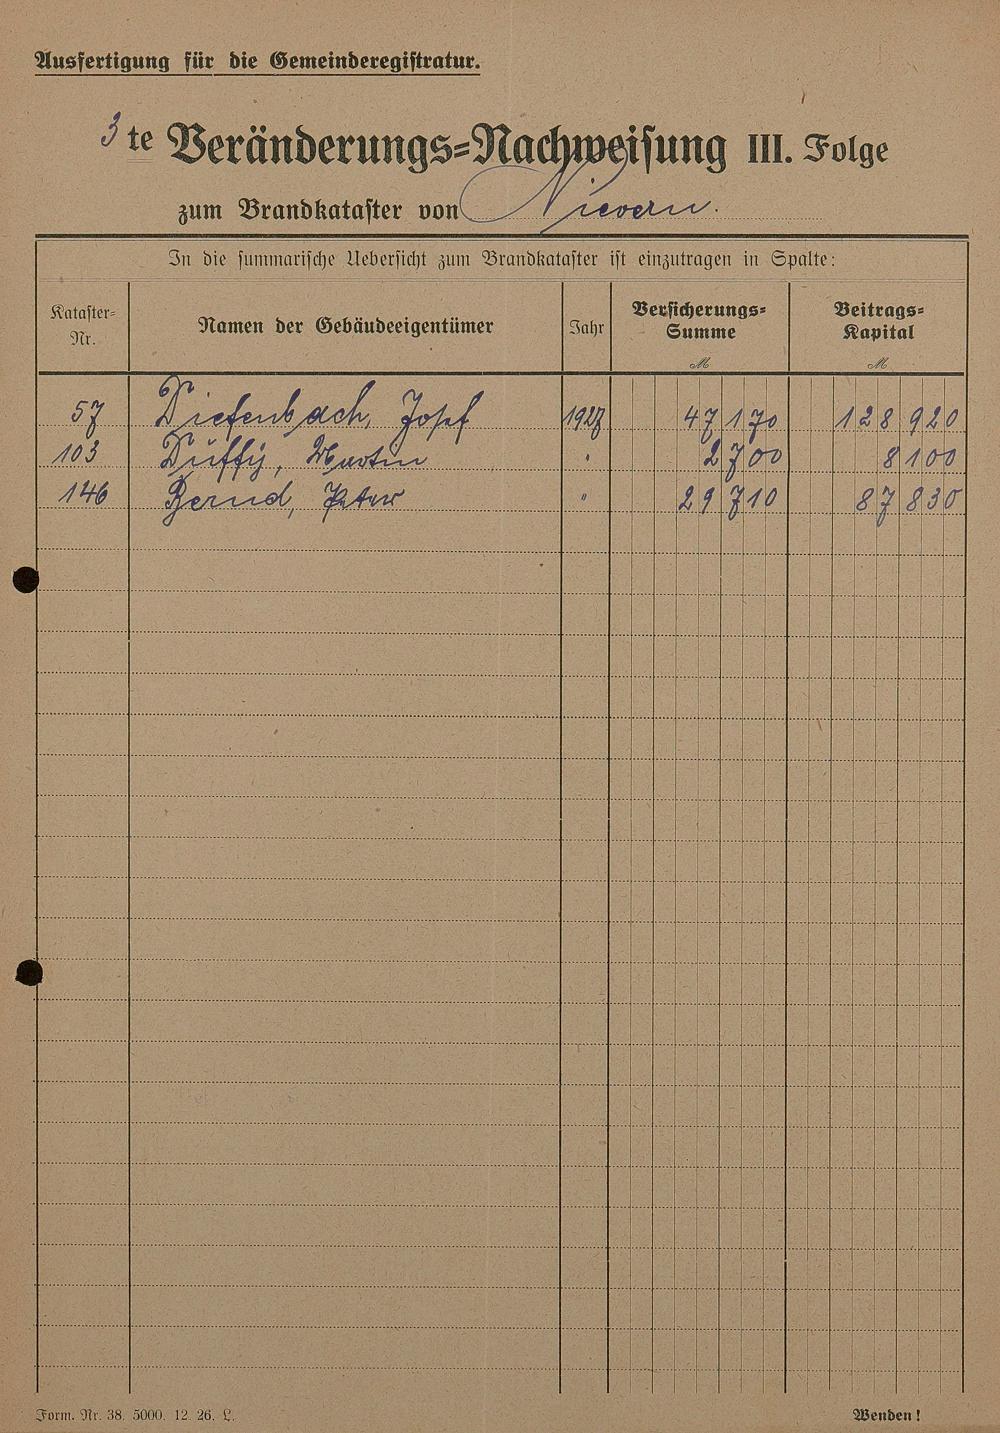 Ausfertigung für die Gemeinderegistratur.
3te Veränderungs-Nachweisung III. Folge
zum Brandkataster von Nievern.
In die summarische Uebersicht zum Brandkataster ist einzutragen in Spalte:
Kataster-Nr. Namen der Gebäudeeigentümer Jahr Versicherungs-Summe M Beitrags-Kapital M
57 Diefenbach, Josef 1927 47 170 128 920
103 Düffy, Martin " 2 700 8 100
146 Bernd, Peter " 29 710 87 830
Form. Nr. 38. 5000. 12. 26. L.
Wenden!